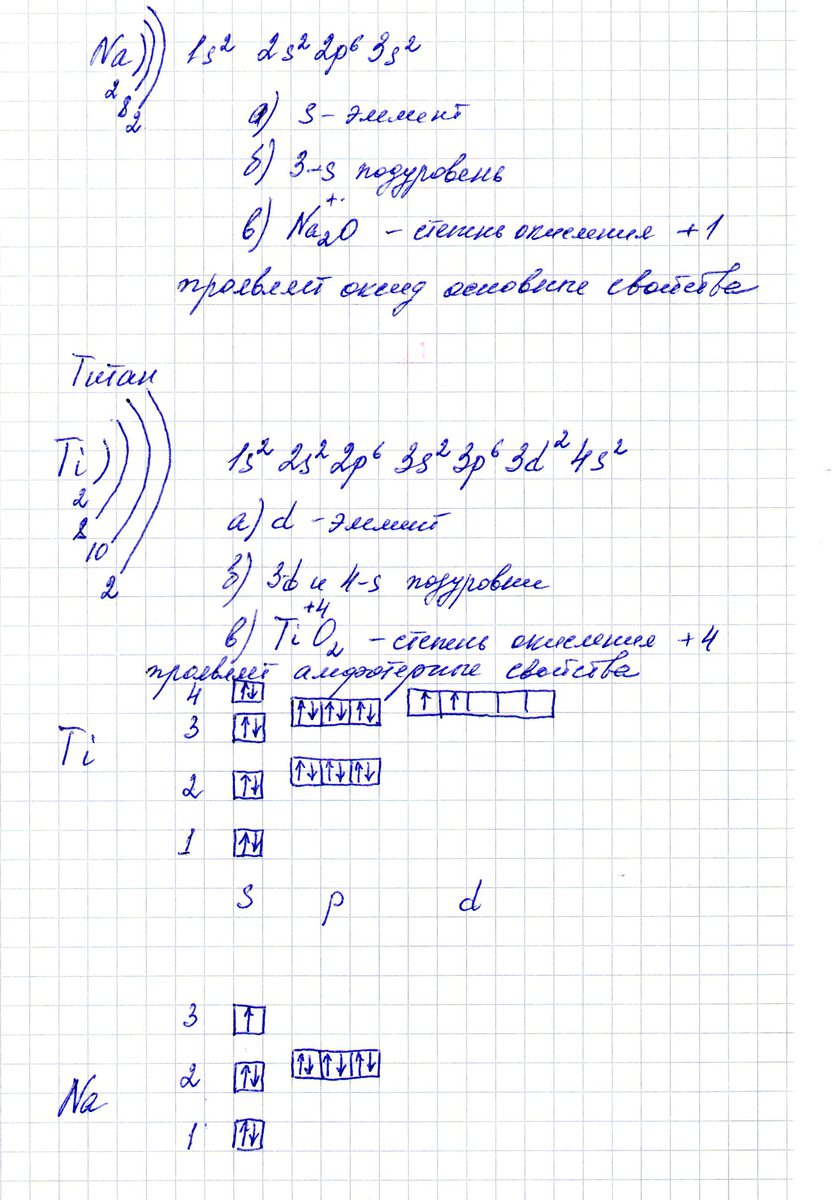 Na))) 1s² 2s² 2p⁶ 3s²
2 8 2
а) s - элемент
б) 3-s подуровень
+.
в) Na₂O - степень окисления +1
проявляет оксид основные свойства
Титан
Ti)))) 1s² 2s² 2p⁶ 3s² 3p⁶ 3d² 4s²
2 8 10 2
а) d - элемент
б) 3d и 4-s подуровни
+4
в) TiO₂ - степень окисления +4
проявляет амфотерные свойства
4 ↑↓
3 ↑↓ ↑↓ ↑↓ ↑↓ ↑ ↑
Ti
2 ↑↓ ↑↓ ↑↓ ↑↓
1 ↑↓
s p d
3 ↑
2 ↑↓ ↑↓ ↑↓ ↑↓
Na
1 ↑↓